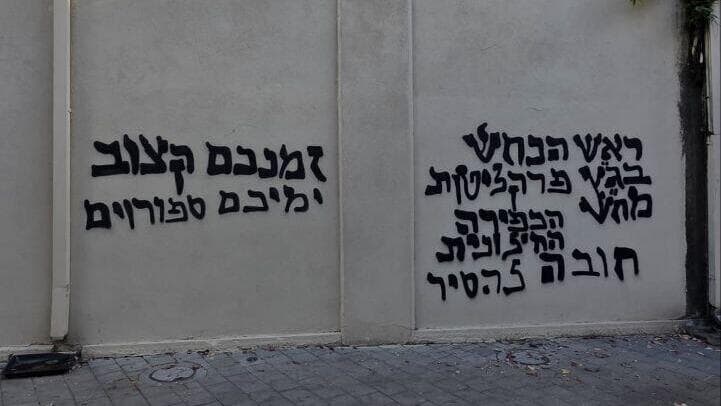 ראש הנחש
בג"ץ פרקליטות
מח"ש
הכפירה
החיצונית
חובה להסיר
זמנכם קצוב
ימיכם ספורים